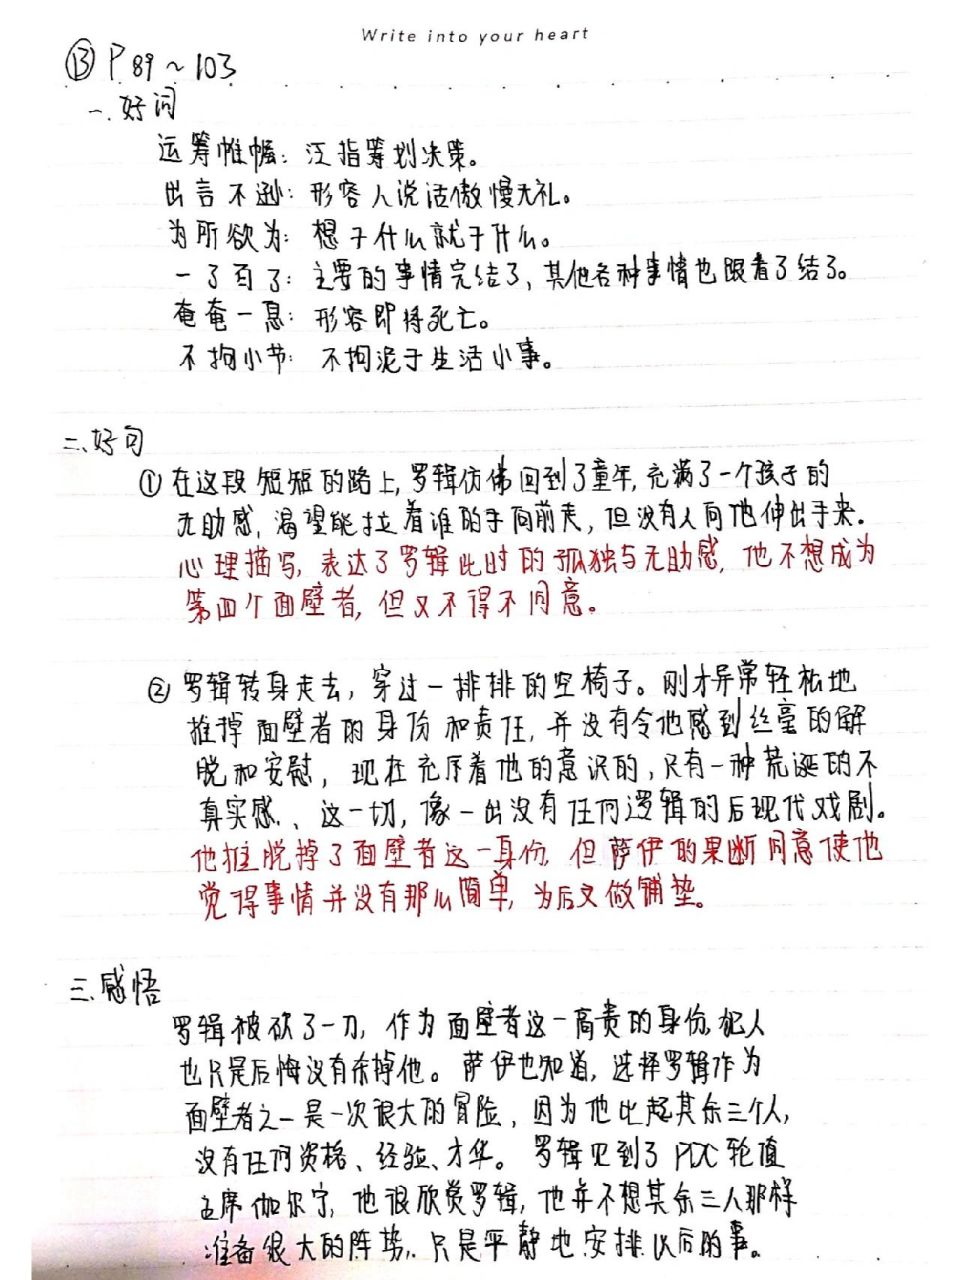 Write into your heart
⑬ P89~103
一、好词
运筹帷幄：泛指筹划决策。
出言不逊：形容人说话傲慢无礼。
为所欲为：想干什么就干什么。
一了百了：主要的事情完结了，其他各种事情也跟着了结了。
奄奄一息：形容即将死亡。
不拘小节：不拘泥于生活小事。
二、好句
①在这段短短的路上，罗辑仿佛回到了童年，充满了一个孩子的
无助感，渴望能拉着谁的手向前走，但没有人向他伸出手来。
心理描写，表达了罗辑此时的孤独与无助感，他不想成为
第四个面壁者，但又不得不同意。
②罗辑转身走去，穿过一排排的空椅子。刚才异常轻松地
推掉面壁者的身份和责任，并没有令他感到丝毫的解
脱和安慰，现在充斥着他的意识的，只有一种荒诞的不
真实感、这一切，像一出没有任何逻辑的后现代戏剧。
他推脱掉了面壁者这一身份，但萨伊的果断同意使他
觉得事情并没有那么简单，为后文做铺垫。
三、感悟
罗辑被砍了一刀，作为面壁者这一高贵的身份，犯人
也只是后悔没有杀掉他。萨伊也知道，选择罗辑作为
面壁者之一是一次很大的冒险，因为他比起其余三个人，
没有任何资格、经验、才华。罗辑见到了PDC轮值
主席伽尔宁，他很欣赏罗辑，他并不想其余三人那样
准备很大的阵势，只是平静地安排以后的事。